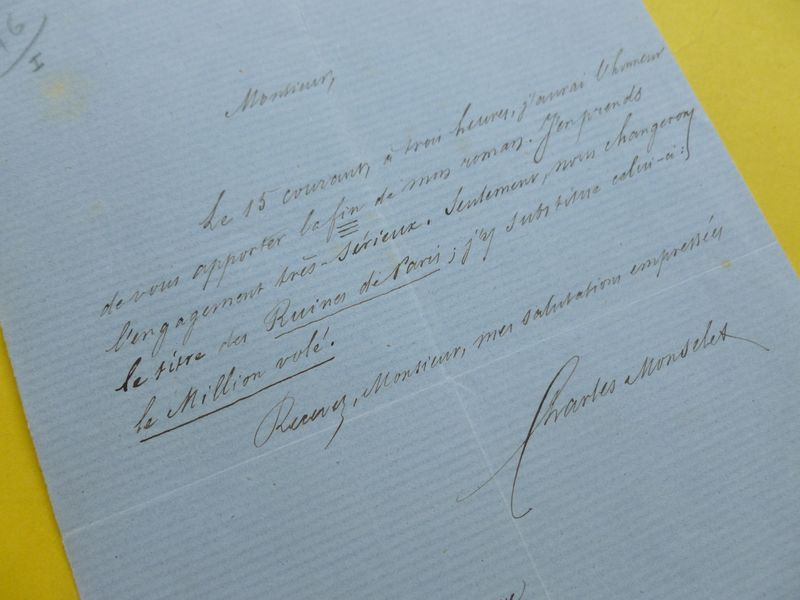 16
I
Monsieur,
Le 15 courant, à trois heures, j'aurai l'honneur
de vous apporter la fin de mon roman. J'en prends
l'engagement très-sérieux. Seulement, nous changerons
le titre des Ruines de Paris; j'y substitue celui-ci:
le Million volé.
Recevez, Monsieur, mes salutations empressées
Charles Monselet